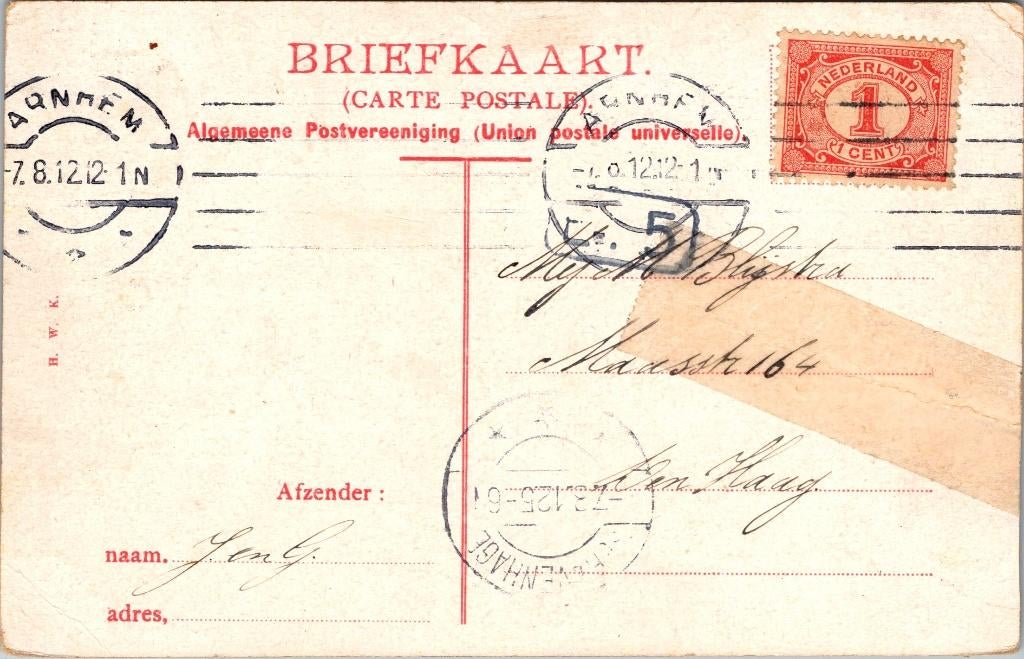 BRIEFKAART.
(CARTE POSTALE).
Algemeene Postvereeniging (Union postale universelle).
NEDERLAND
1
1 CENT
ARNHEM
-7.8.12 12-1N
ARNHEM
-7.8.12 12-1N
5
H. W. K.
Mej M Blijstra
Maasstr 164
Den Haag.
-7.8.12 5-6N
'S-GRAVENHAGE
Afzender:
naam. J en G.
adres,